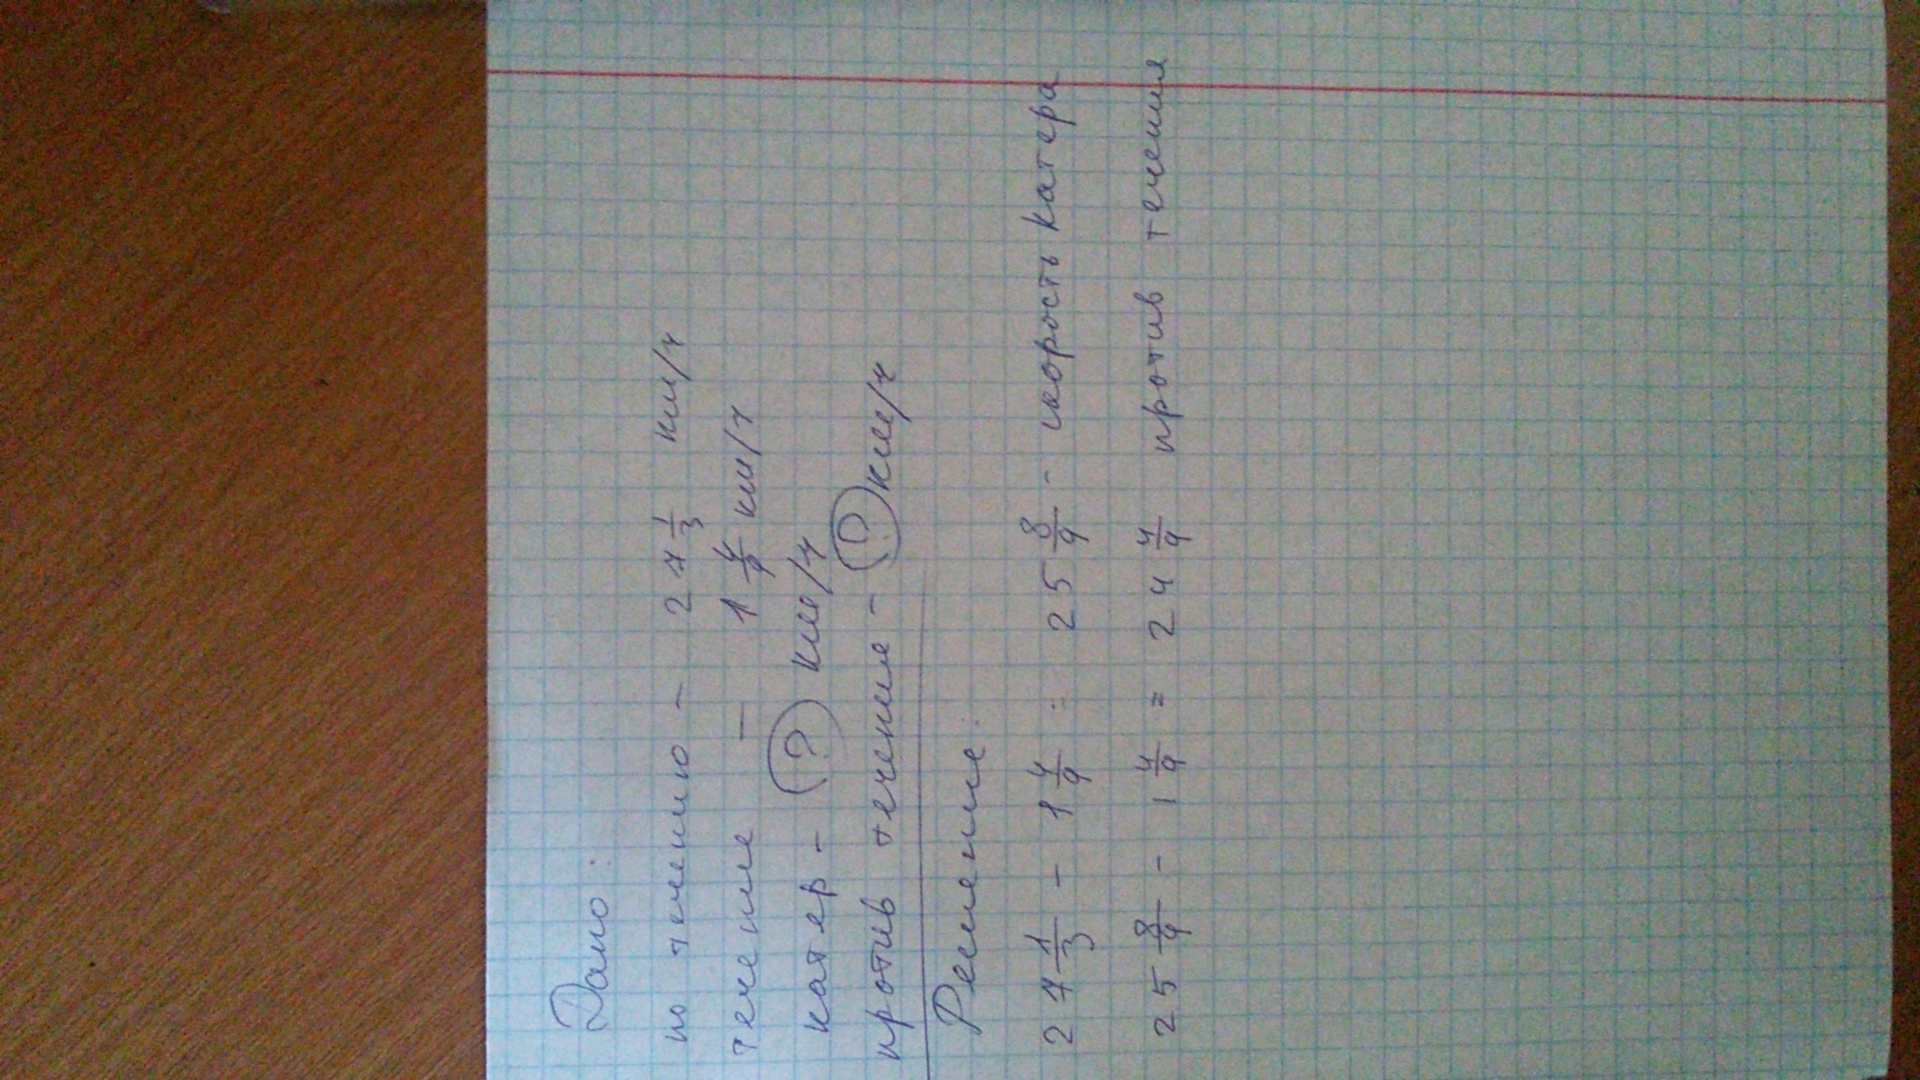 Дано:
по течению - 27 1/3 км/ч
течение - 1 4/9 км/ч
катер - ? км/ч
против течения - ? км/ч
Решение:
27 1/3 - 1 4/9 = 25 8/9 - скорость катера
25 8/9 - 1 4/9 = 24 4/9 против течения